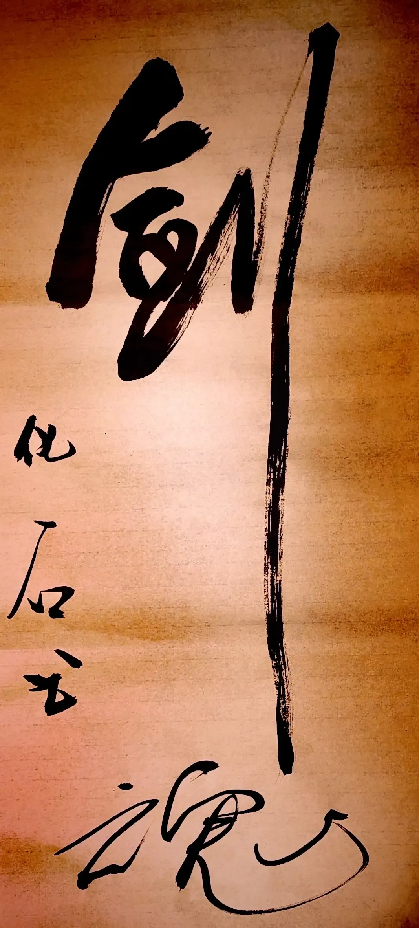 剑魂
化石书